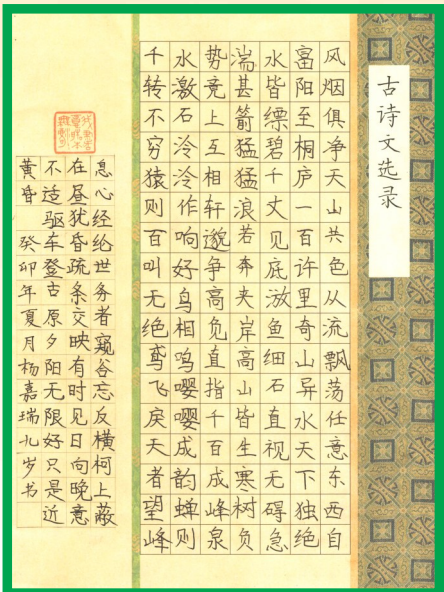 古诗文选录
风烟俱净天山共色从流飘荡任意东西自
富阳至桐庐一百许里奇山异水天下独绝
水皆缥碧千丈见底游鱼细石直视无碍急
湍甚箭猛猛浪若奔夹岸高山皆生寒树负
势竞上互相轩邈争高负直指千百成峰泉
水激石泠泠作响好鸟相鸣嘤嘤成韵蝉则
千转不穷猿则百叫无绝鸢飞戾天者望峰
息心经纶世务者窥谷忘反横柯上蔽
在昼犹昏疏条交映有时见日向晚意
不适驱车登古原夕阳无限好只是近
黄昏 癸卯年夏月杨嘉瑞九岁书